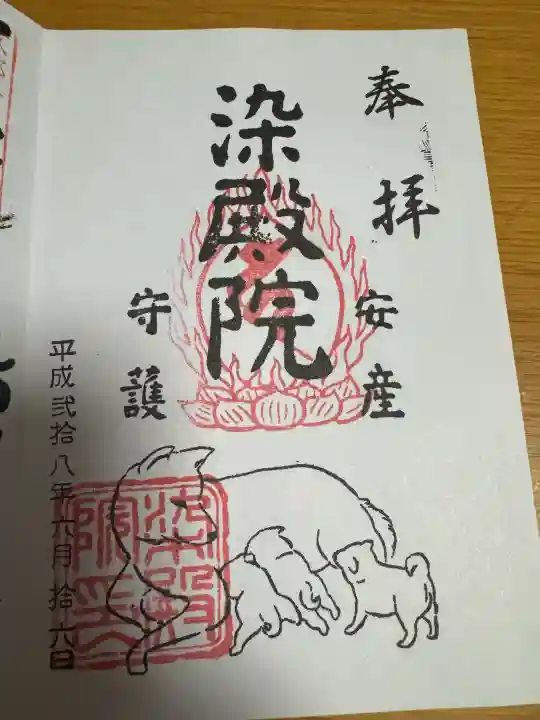 奉拝
安産
染殿院
守護
平成弐拾八年六月拾六日
染殿院